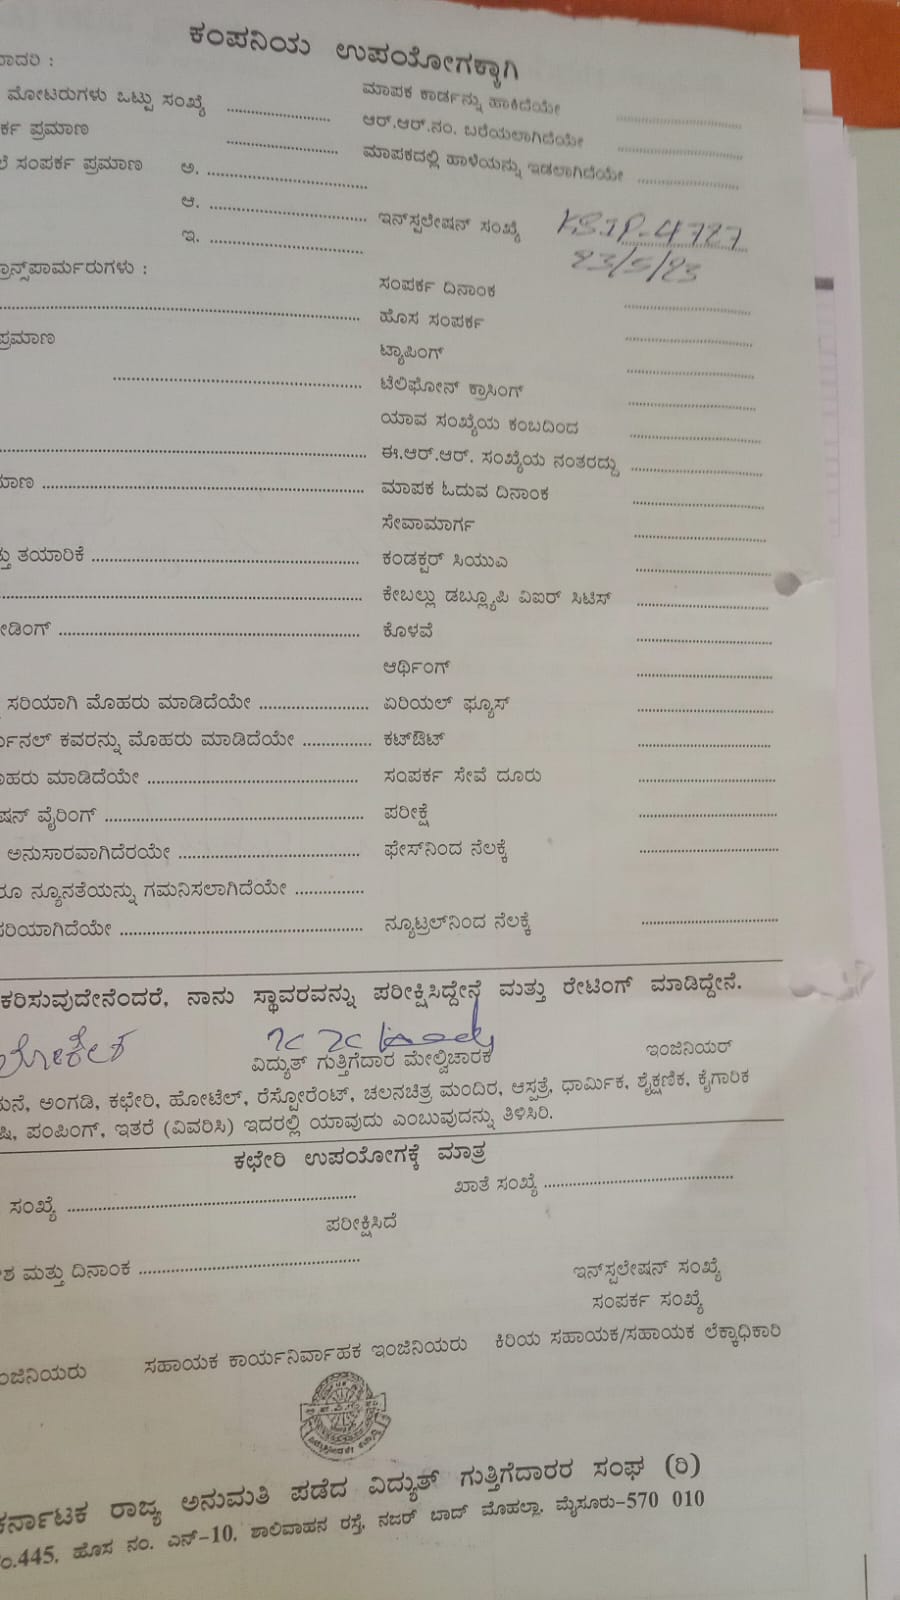 ಕಂಪನಿಯ ಉಪಯೋಗಕ್ಕಾಗಿ
ಾದರಿ :
ಮೋಟರುಗಳು ಒಟ್ಟು ಸಂಖ್ಯೆ .................... ಮಾಪಕ ಕಾರ್ಡನ್ನು ಹಾಕಿದೆಯೇ ....................
ರ್ಕ ಪ್ರಮಾಣ .................... ಆರ್.ಆರ್.ನಂ. ಬರೆಯಲಾಗಿದೆಯೇ ....................
ೆ ಸಂಪರ್ಕ ಪ್ರಮಾಣ ಅ. .................... ಮಾಪಕದಲ್ಲಿ ಹಾಳೆಯನ್ನು ಇಡಲಾಗಿದೆಯೇ ....................
ಆ. .................... ಇನ್‌ಸ್ಪಲೇಷನ್ ಸಂಖ್ಯೆ KSIP-4727
ಇ. .................... 23/5/23
ರಾನ್ಸ್‌ಫಾರ್ಮರುಗಳು : ಸಂಪರ್ಕ ದಿನಾಂಕ ....................
.................... ಹೊಸ ಸಂಪರ್ಕ ....................
ಪ್ರಮಾಣ ಟ್ಯಾಪಿಂಗ್ ....................
.................... ಟೆಲಿಫೋನ್ ಕ್ರಾಸಿಂಗ್ ....................
ಯಾವ ಸಂಖ್ಯೆಯ ಕಂಬದಿಂದ ....................
.................... ಈ.ಆರ್.ಆರ್. ಸಂಖ್ಯೆಯ ನಂತರದ್ದು ....................
ಮಾಣ .................... ಮಾಪಕ ಓದುವ ದಿನಾಂಕ ....................
ಸೇವಾಮಾರ್ಗ ....................
ತ್ತು ತಯಾರಿಕೆ .................... ಕಂಡಕ್ಟರ್ ಸಿಯುಎ ....................
.................... ಕೇಬಲ್ಲು ಡಬ್ಲ್ಯೂಪಿ ವಿಐರ್ ಸಿಟಿಸ್ ....................
ೇಡಿಂಗ್ .................... ಕೊಳವೆ ....................
ಆರ್ಥಿಂಗ್ ....................
ಸರಿಯಾಗಿ ಮೊಹರು ಮಾಡಿದೆಯೇ .................... ಏರಿಯಲ್ ಫ್ಯೂಸ್ ....................
ರ್ಮಿನಲ್ ಕವರನ್ನು ಮೊಹರು ಮಾಡಿದೆಯೇ .................... ಕಟ್‌ಔಟ್ ....................
ೊಹರು ಮಾಡಿದೆಯೇ .................... ಸಂಪರ್ಕ ಸೇವೆ ದೂರು ....................
ಷನ್ ವೈರಿಂಗ್ .................... ಪರೀಕ್ಷೆ ....................
ಅನುಸಾರವಾಗಿದೆರಯೇ .................... ಫೇಸ್‌ನಿಂದ ನೆಲಕ್ಕೆ ....................
ರೂ ನ್ಯೂನತೆಯನ್ನು ಗಮನಿಸಲಾಗಿದೆಯೇ ....................
ಸರಿಯಾಗಿದೆಯೇ .................... ನ್ಯೂಟ್ರಲ್‌ನಿಂದ ನೆಲಕ್ಕೆ ....................
ಕರಿಸುವುದೇನೆಂದರೆ, ನಾನು ಸ್ಥಾವರವನ್ನು ಪರೀಕ್ಷಿಸಿದ್ದೇನೆ ಮತ್ತು ರೇಟಿಂಗ್ ಮಾಡಿದ್ದೇನೆ.
ಲೋಕೇಶ
ವಿದ್ಯುತ್ ಗುತ್ತಿಗೆದಾರ ಮೇಲ್ವಿಚಾರಕ ಇಂಜಿನಿಯರ್
ಮನೆ, ಅಂಗಡಿ, ಕಛೇರಿ, ಹೋಟೆಲ್, ರೆಸ್ಟೋರೆಂಟ್, ಚಲನಚಿತ್ರ ಮಂದಿರ, ಆಸ್ಪತ್ರೆ, ಧಾರ್ಮಿಕ, ಶೈಕ್ಷಣಿಕ, ಕೈಗಾರಿಕ
ಷಿ, ಪಂಪಿಂಗ್, ಇತರೆ (ವಿವರಿಸಿ) ಇದರಲ್ಲಿ ಯಾವುದು ಎಂಬುವುದನ್ನು ತಿಳಿಸಿರಿ.
ಕಛೇರಿ ಉಪಯೋಗಕ್ಕೆ ಮಾತ್ರ
ಸಂಖ್ಯೆ .................... ಖಾತೆ ಸಂಖ್ಯೆ ....................
ಪರೀಕ್ಷಿಸಿದೆ
ಶ ಮತ್ತು ದಿನಾಂಕ ....................
ಇನ್‌ಸ್ಪಲೇಷನ್ ಸಂಖ್ಯೆ
ಸಂಪರ್ಕ ಸಂಖ್ಯೆ
ಂಜಿನಿಯರು ಸಹಾಯಕ ಕಾರ್ಯನಿರ್ವಾಹಕ ಇಂಜಿನಿಯರು ಕಿರಿಯ ಸಹಾಯಕ/ಸಹಾಯಕ ಲೆಕ್ಕಾಧಿಕಾರಿ
ಕರ್ನಾಟಕ ರಾಜ್ಯ ಅನುಮತಿ ಪಡೆದ ವಿದ್ಯುತ್ ಗುತ್ತಿಗೆದಾರರ ಸಂಘ (ರಿ)
ನಂ.445, ಹೊಸ ನಂ. ಎನ್-10, ಶಾಲಿವಾಹನ ರಸ್ತೆ, ನಜರ್ ಬಾದ್ ಮೊಹಲ್ಲಾ, ಮೈಸೂರು-570 010